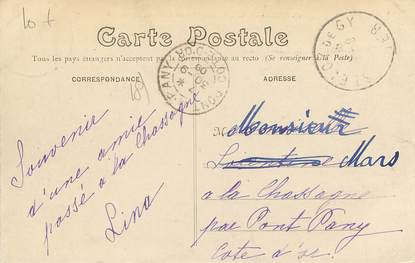 10 +
Carte Postale
Tous les pays étrangers n'acceptent pas la correspondance au recto (Se renseigner à la Poste).
CORRESPONDANCE
ADRESSE
Souvenir
d'une amie
passé a la Chassagne
Lina
Monsieur
Mars
a la Chassagne
par Pont Pany
Cote d'or